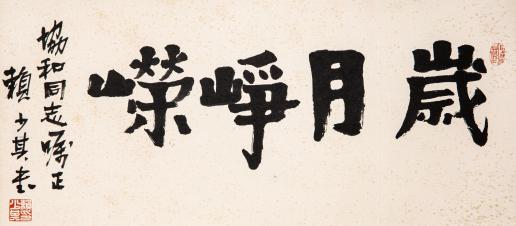 嵗月崢嶸
協和同志嘱正
賴少其書